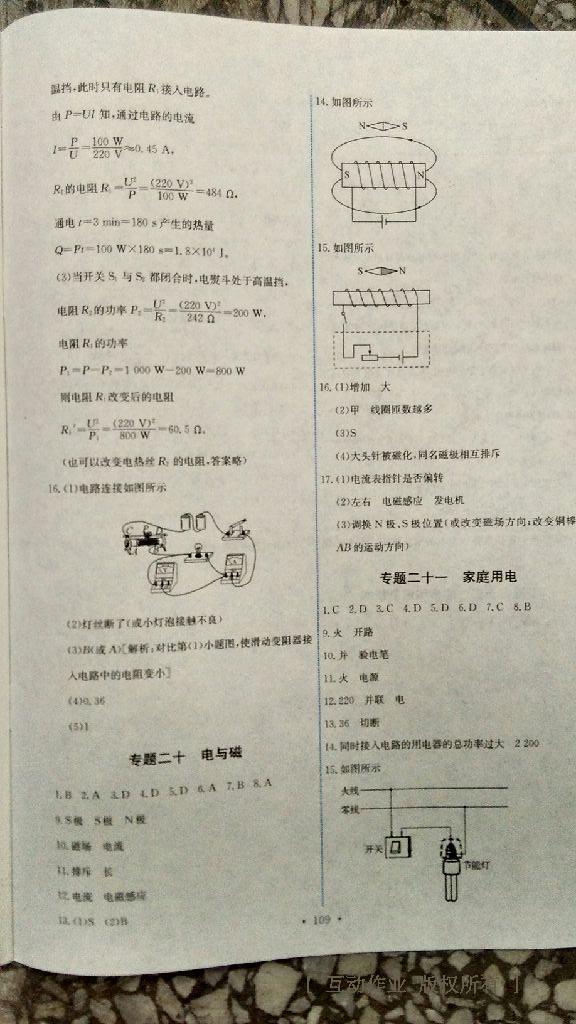 温挡,此时只有电阻 R₁ 接入电路。
由 P=UI 知,通过电路的电流
I=P/U=100 W/220 V≈0.45 A,
R₁的电阻 R₁=U²/P=(220 V)²/100 W=484 Ω,
通电 t=3 min=180 s 产生的热量
Q=Pt=100 W×180 s=1.8×10⁴ J。
(3)当开关 S₁ 与 S₂ 都闭合时,电熨斗处于高温挡,
电阻 R₂的功率 P₂=U²/R₂=(220 V)²/242 Ω=200 W,
电阻 R₁的功率
P₁=P-P₂=1 000 W-200 W=800 W
则电阻 R₁改变后的电阻
R₁′=U²/P₁=(220 V)²/800 W=60.5 Ω。
(也可以改变电热丝 R₂ 的电阻,答案略)
16.(1)电路连接如图所示
(2)灯丝断了(或小灯泡接触不良)
(3)B(或 A)[解析:对比第(1)小题图,使滑动变阻器接
入电路中的电阻变小]
(4)0.36
(5)1
专题二十 电与磁
1.B 2.A 3.D 4.D 5.D 6.A 7.B 8.A
9.S极 S极 N极
10.磁场 电流
11.排斥 长
12.电流 电磁感应
13.(1)S (2)B
14.如图所示
N S
S N
15.如图所示
S N
16.(1)增加 大
(2)甲 线圈匝数越多
(3)S
(4)大头针被磁化,同名磁极相互排斥
17.(1)电流表指针是否偏转
(2)左右 电磁感应 发电机
(3)调换 N 极、S 极位置(或改变磁场方向;改变铜棒
AB 的运动方向)
专题二十一 家庭用电
1.C 2.D 3.C 4.D 5.D 6.D 7.C 8.B
9.火 开路
10.并 验电笔
11.火 电源
12.220 并联 电
13.36 切断
14.同时接入电路的用电器的总功率过大 2 200
15.如图所示
火线
零线
开关
节能灯
· 109 ·
[ 互动作业 版权所有 ]